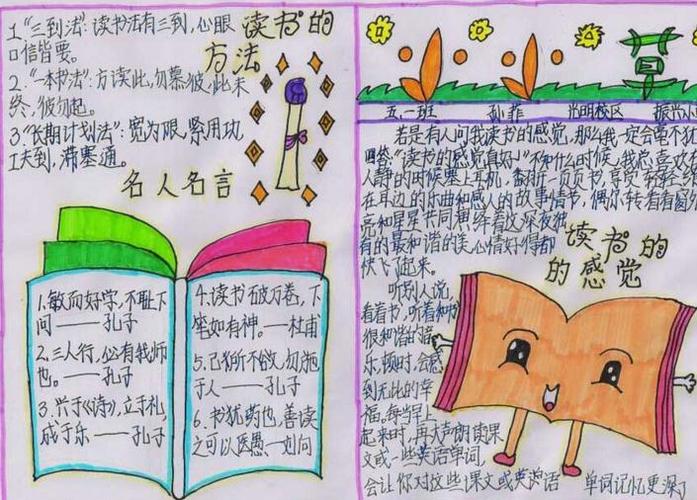 读书的
方法
1.“三到法”:读书法有三到,心眼
口信皆要。
2.“一本书法”:方读此,勿慕彼,此未
终,彼勿起。
3.“长期计划法”:宽为限,紧用功,
工夫到,滞塞通。
名人名言
1.敏而好学,不耻下
问——孔子
2.三人行,必有我师
也。——孔子
3.兴于《诗》,立于礼,
成于乐——孔子
4.读书破万卷,下
笔如有神。——杜甫
5.己所不欲,勿施
于人——孔子
6.书犹药也,善读
之可以医愚——刘向
五,二班 孙菲 光明校区 振兴小
若是有人问我读书的感觉,那么我一定会毫不犹
回答:“读书的感觉真好!”不知什么时候,我总喜欢在
人静的时候塞上耳机,翻开一页页书,享受轻轻
在耳边的乐曲和感人的故事情节,偶尔转看看窗外
亮和星星共同演绎着这深夜独
有的最和谐的美,心情好得都
快飞起来。
读书的
的感觉
听别人说,
看着书,听着和书
很和谐的音
乐,顿时,会感
到无比的幸
福。每当早上
起来时,再大声朗读课
文或一些英语单词,
会让你对这些课文或英语 单词记忆更深了